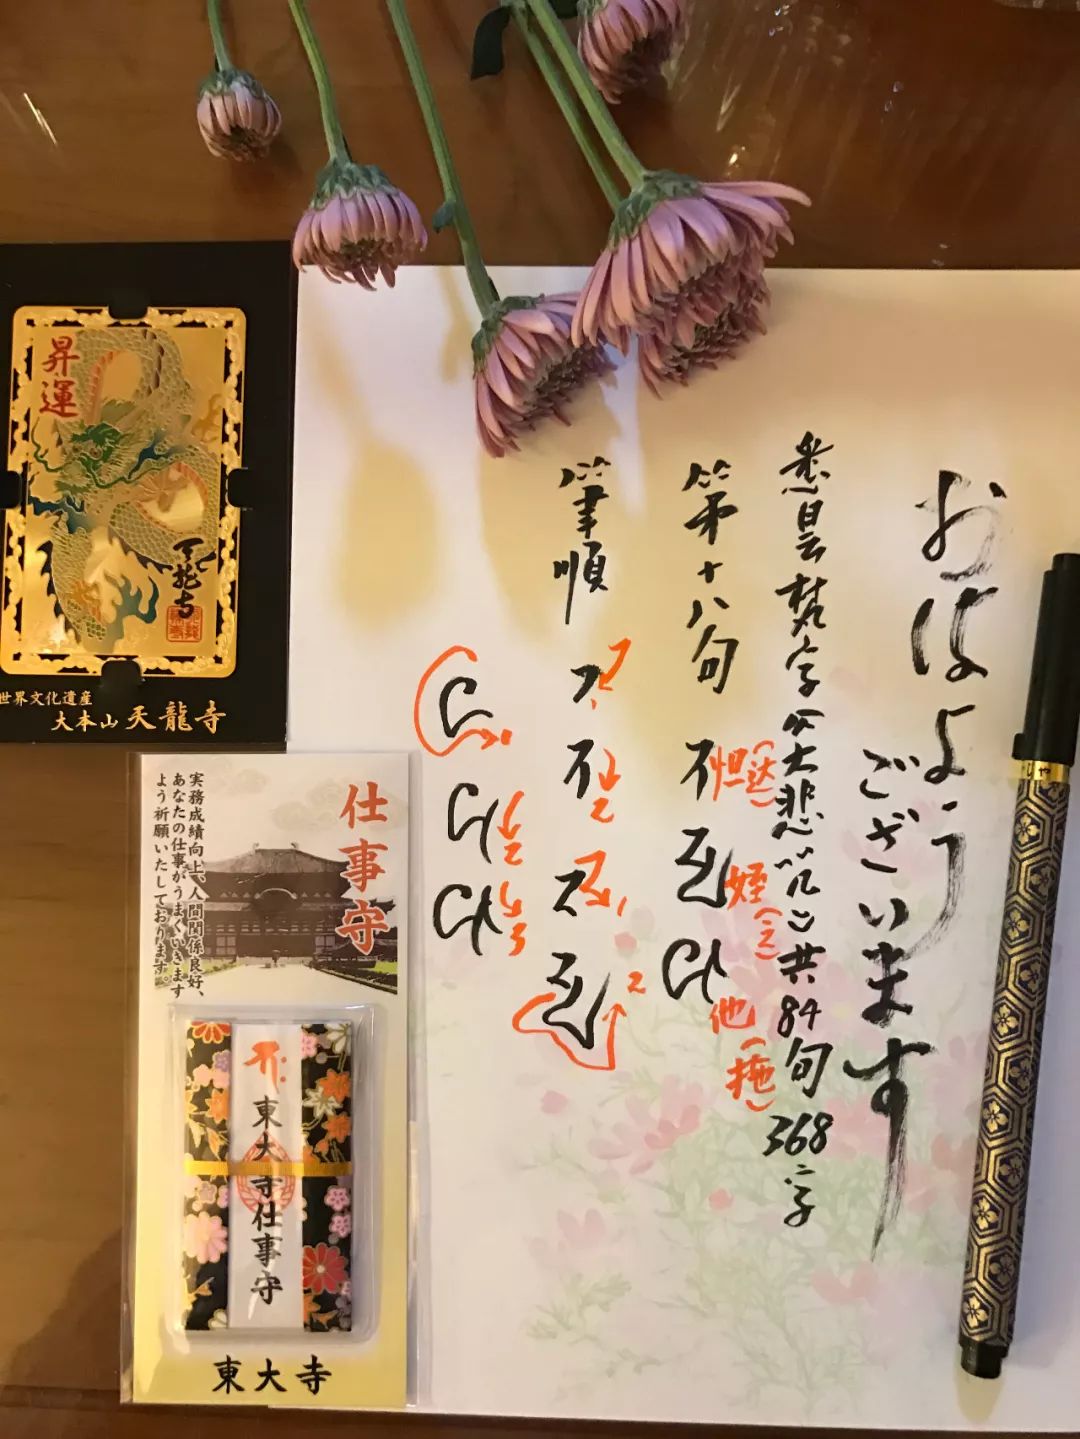 おはよう
ございます
悉曇梵字《大悲咒》共84句368字
第十八句
怛(达)
姪(
他(拖)
筆順
1
2
1
2
1
2
3
昇運
天龍寺
世界文化遺産
大本山 天龍寺
仕事守
実務成績向上、人間関係良好、
あなたの仕事がうまくいきます
よう祈願いたしております。
東大寺仕事守
東大寺